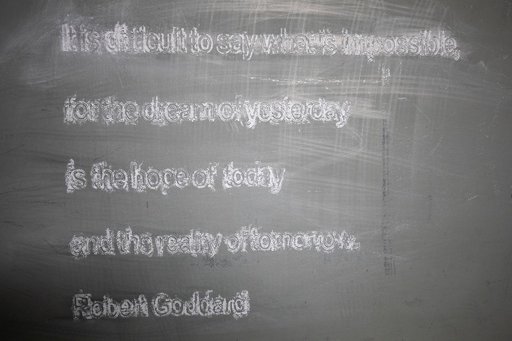 It is difficult to say what is impossible,
for the dream of yesterday
is the hope of today
and the reality of tomorrow.
Robert Goddard